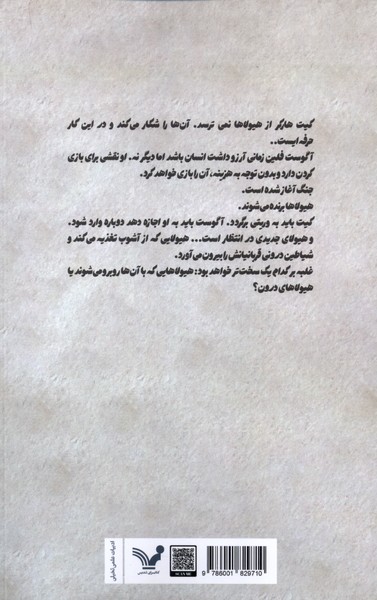 کیت هارکر از هیولاها نمی ترسد. آن‌ها را شکار می‌کند و در این کار
حرفه ایست..
آگوست فلین زمانی آرزو داشت انسان باشد اما دیگر نه. او نقشی برای بازی
کردن دارد و بدون توجه به هزینه، آن را بازی خواهد کرد.
جنگ آغاز شده است.
هیولاها برنده می‌شوند.
کیت باید به وریتی برگردد. آگوست باید به او اجازه دهد دوباره وارد شود.
و هیولای جدیدی در انتظار است... هیولایی که از آشوب تغذیه می‌کند و
شیاطین درونی قربانیانش را بیرون می‌آورد.
غلبه بر کدام یک سخت‌تر خواهد بود: هیولاهایی که با آن‌ها روبرو می‌شوند یا
هیولاهای درون؟
ادبیات علمی تخیلی
کتابسرای تندیس
9 786001 829710